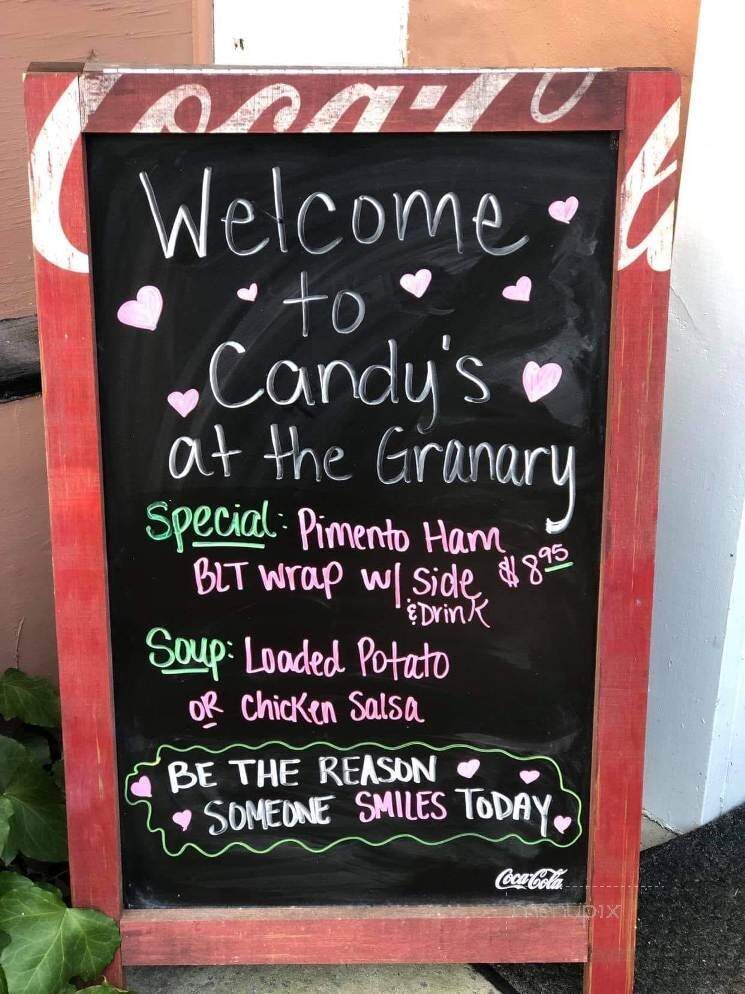 Coca-Co
Welcome
to
Candy's
at the Granary
Special: Pimento Ham
BLT wrap w/ side $8.95
& Drink
Soup: Loaded Potato
OR Chicken Salsa
BE THE REASON
SOMEONE SMILES TODAY
Coca-Cola
menupix